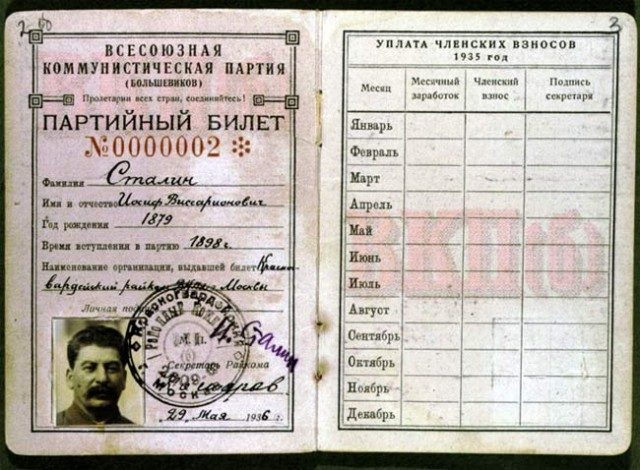 20
ВСЕСОЮЗНАЯ
КОММУНИСТИЧЕСКАЯ ПАРТИЯ
(БОЛЬШЕВИКОВ)
Пролетарии всех стран, соединяйтесь!
ПАРТИЙНЫЙ БИЛЕТ
№0000002
Фамилия Сталин
Имя и отчество Иосиф Виссарионович
Год рождения 1879
Время вступления в партию 1898 г.
Наименование организации, выдавшей билет Красно-
вардейский райком г. Москвы
Личная
И. Сталин
М. П.
Секретарь Райкома
29 мая 1936 г.
3
УПЛАТА ЧЛЕНСКИХ ВЗНОСОВ
1935 год
Месяц
Месячный заработок
Членский взнос
Подпись секретаря
Январь
Февраль
Март
Апрель
Май
Июнь
Июль
Август
Сентябрь
Октябрь
Ноябрь
Декабрь
ВКП(б)